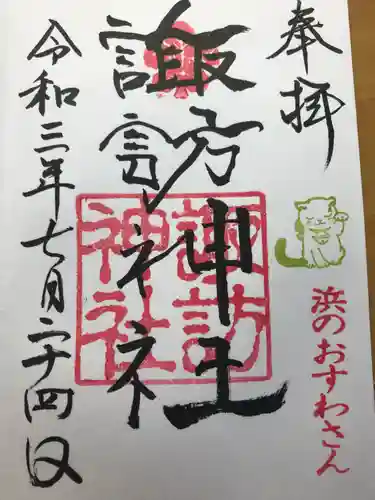 奉拝
浜のおすわさん
諏訪神社
諏訪神社
令和三年七月二十四日